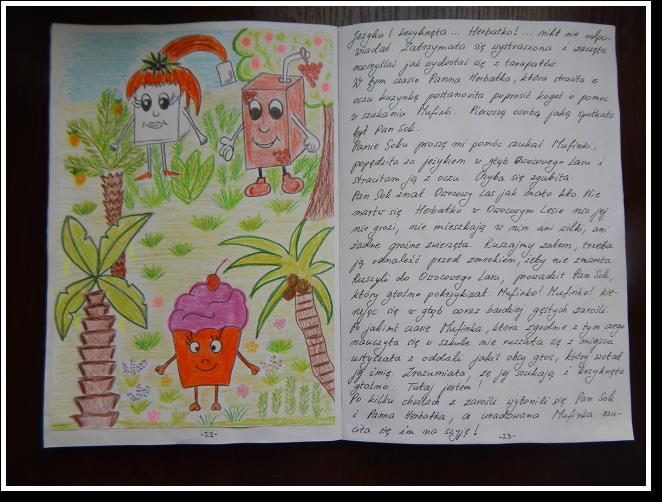 Jeżyku! krzyknęła ... Herbatko! ... nikt nie odpo-
wiadał. Zatrzymała się wystraszona i zaczęła
rozmyślać jak wydostać się z tarapatów.
W tym czasie Panna Herbatka, która straciła z
oczu kuzynkę postanowiła poprosić kogoś o pomoc
w szukaniu Mufinki. Pierwszą osobą jaką spotkała
był Pan Sok.
Panie Soku proszę mi pomóc szukać Mufinki,
popędziła za jeżykiem w głąb Owocowego Lasu i
straciłam ją z oczu. Chyba się zgubiła.
Pan Sok znał Owocowy Las jak mało kto. Nie
martw się Herbatko w Owocowym Lesie nic jej
nie grozi, nie mieszkają w nim ani wilki, ani
żadne groźne zwierzęta. Ruszajmy zatem, trzeba
ją odnaleźć przed zmrokiem, żeby nie zmarzła.
Ruszyli do Owocowego Lasu, prowadził Pan Sok,
który głośno pokrzykiwał: Mufinko! Mufinko! kie-
rując się w głąb coraz bardziej gęstych zarośli.
Po jakimś czasie Mufinka, która zgodnie z tym czego
nauczyła się w szkole nie ruszała się z miejsca
usłyszała z oddali jakiś obcy głos, który wołał
jej imię. Zrozumiała, że jej szukają i krzyknęła
głośno: Tutaj jestem!
Po kilku chwilach z zarośli wyłonili się Pan Sok
i Panna Herbatka, a uradowana Mufinka rzu-
ciła się im na szyję!
-22-
-23-